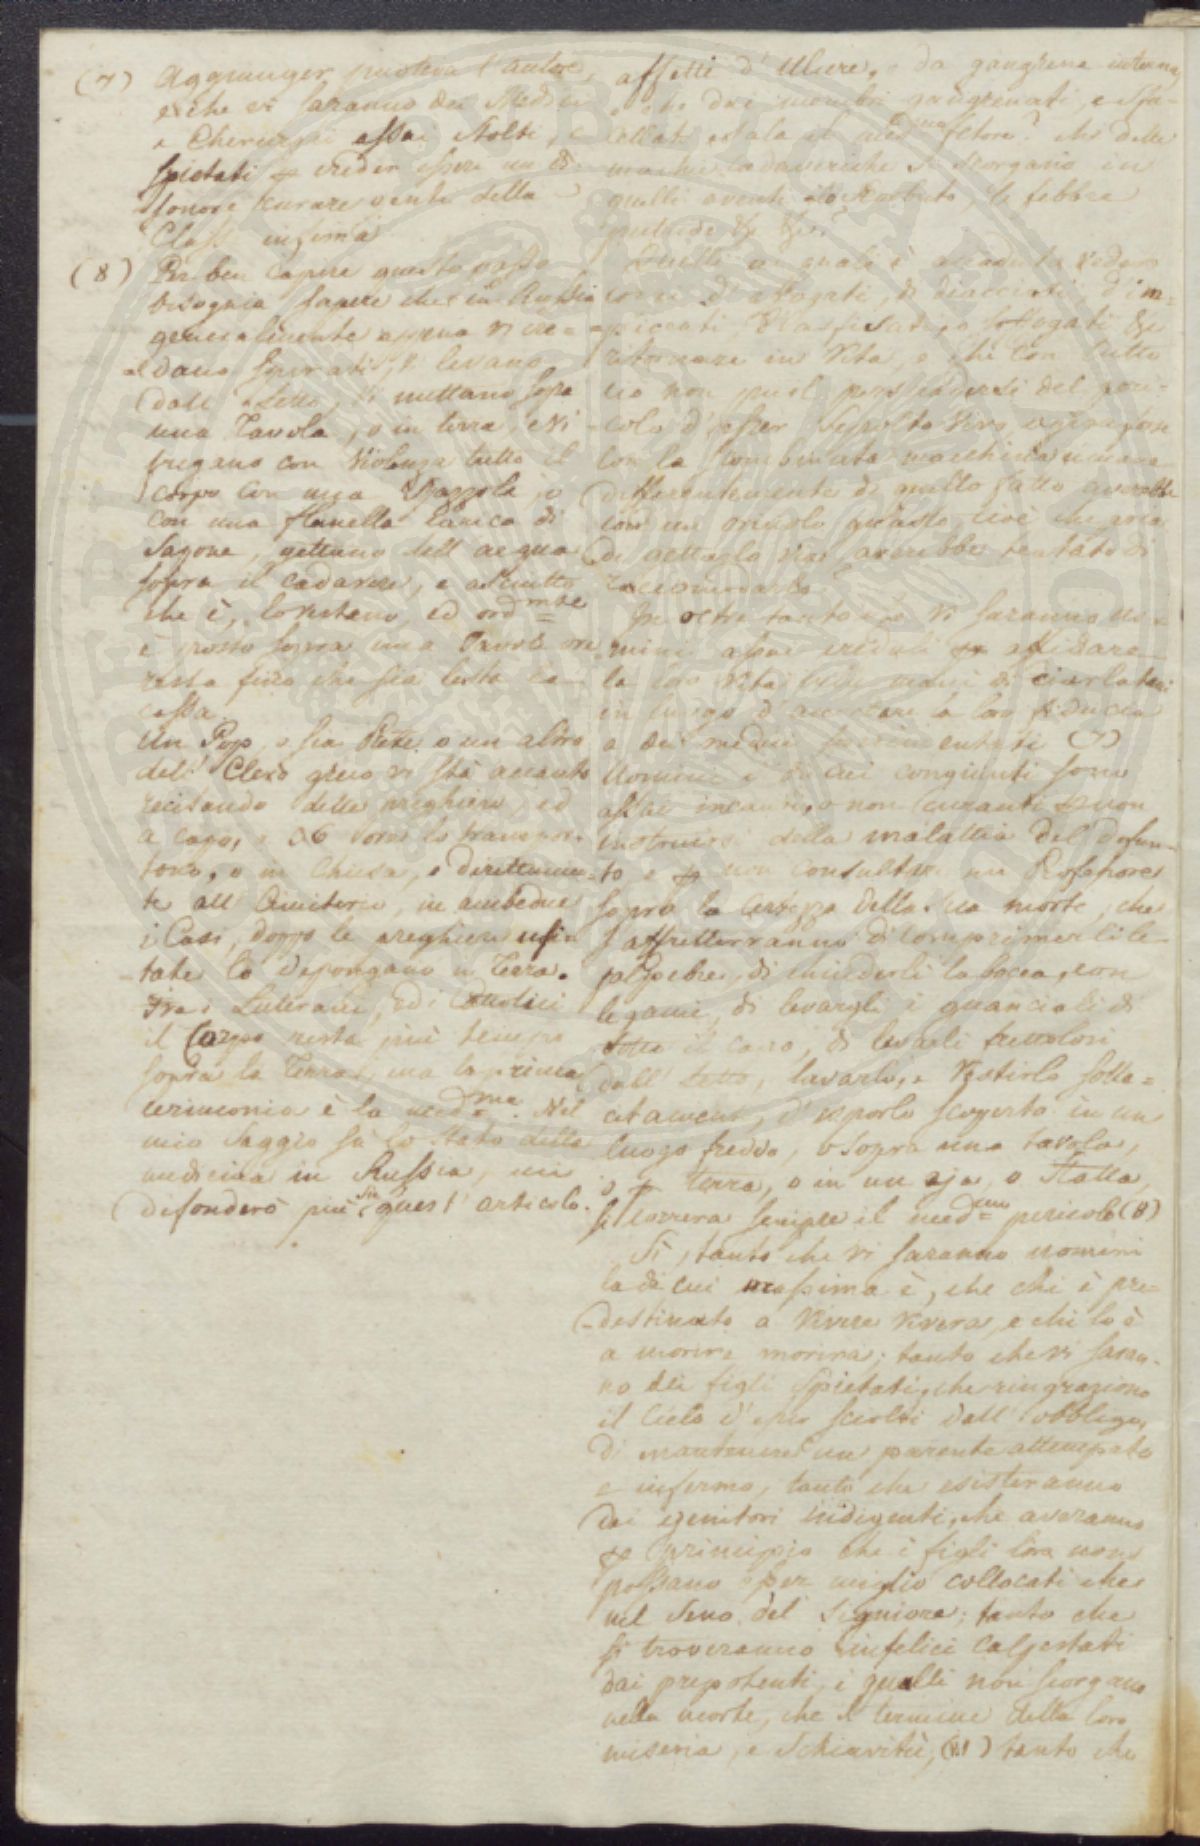 (7) Aggiunger puoteva l'autore,
e che vi saranno dei Medici
e Cherurghi assai stolti, e
spietati p creder essere un di
sonore curare gente della
Classe infima
(8) Per ben capire questo passo
bisognia sapere che in Russia
generalmente appena vi cre=
dano spirati, vi levano
dall letto, vi mettano sopra
una Tavola, o in terra, e vi
fregano con violenza tutto il
corpo con una spazzola, o
con una flanella carica di
Sapone, gettano dell' acqua
sopra il cadavere, e asciutto
che è, lo vesteno, ed ord=mte
è posto sopra una Tavola ove
resta fino che sia lesta la
cassa.
Un Pop, o sia Prete, o un altro
del' Clero greco vi stà accanto
recitando delle preghiere, ed
a capo, o 36 hore lo transpor-
tono, o in Chiesa, o direttamen=
te all' Cimiterio, in ambedue
i Casi, doppo le preghiere usi
tate lo depongano in Terra.
Fra i Luterani, ed i Cattolici
il Corpo resta più tempo
sopra la Terra, ma la prima
cerimonia è la med=ma. Nel
mio Saggio sù lo Stato della
medicina in Russia, mi
difonderò più su quest' articolo.
affetti d' Ulcere, o da gangrena interna
e che dai membri gangrenati, e sfa-
cellati esala il med=mo fetore? che delle
machie cadaveriche si scorgano in
quelli aventi lo scorbuto, le febbre
putride &c &c?
Quelli ai quali è accaduto veder
corpi d'affogati, di diacciati, d'im=
piccati, d'asfissati, o soffogati &c
ritornare in Vita, e chi con tutto
cio non puol persuadersi del peri-
colo d'esser sepolto vivo, agirà forse
con la stombinata macchina umana
differentemente di quello fatto averebbe
con un orivolo guasto, cioè che pria
di gettarlo via, averebbe tentato di
raccomodarlo.
In oltre tanto che vi saranno uo=
mini assai creduli p affidare
la loro vita nelle mani di ciarlatani
in luogo d'accordare la loro fiducia
a dei medici sperimentati (7)
Uomini e di cui congiunti sono
assai incauti, o non curanti p non
instruirsi della malattia del defun-
to e p non consultare un Professore
sopra la certezza della sua morte, che
s'affretterranno di comprimerli le
palpebre, di chiuderli la bocca, con
legami, di levargli i guanciali di
sotto il capo, di levarli frettolosi
dall' letto, lavarlo, e vestirlo solle=
citamente, d'esporlo scoperto in un
luogo freddo, o sopra una tavola,
o p terra, o in un aja, o stalla,
si correra sempre il med=mo pericolo (8)
Sì, tanto che vi saranno uomini
la di cui massima è, che chi è pre=
destinato a vivere vivera, e chi lo è
a morire morirà; tanto che vi saran-
no dei figli spietati, che ringraziono
il Cielo d'esser sciolti dall' obbligo,
di mantenere un parente attempato
e infermo, tanto che esisteranno
dei genitori indigenti, che averanno
p principio che i figli loro non
possano esser meglio collocati che
nel seno del Signiore; tanto che
si troveranno infelici calpestati
dai prepotenti, i qualli non scorgano
nella morte, che il termine della loro
miseria, e schiavitù, tanto che